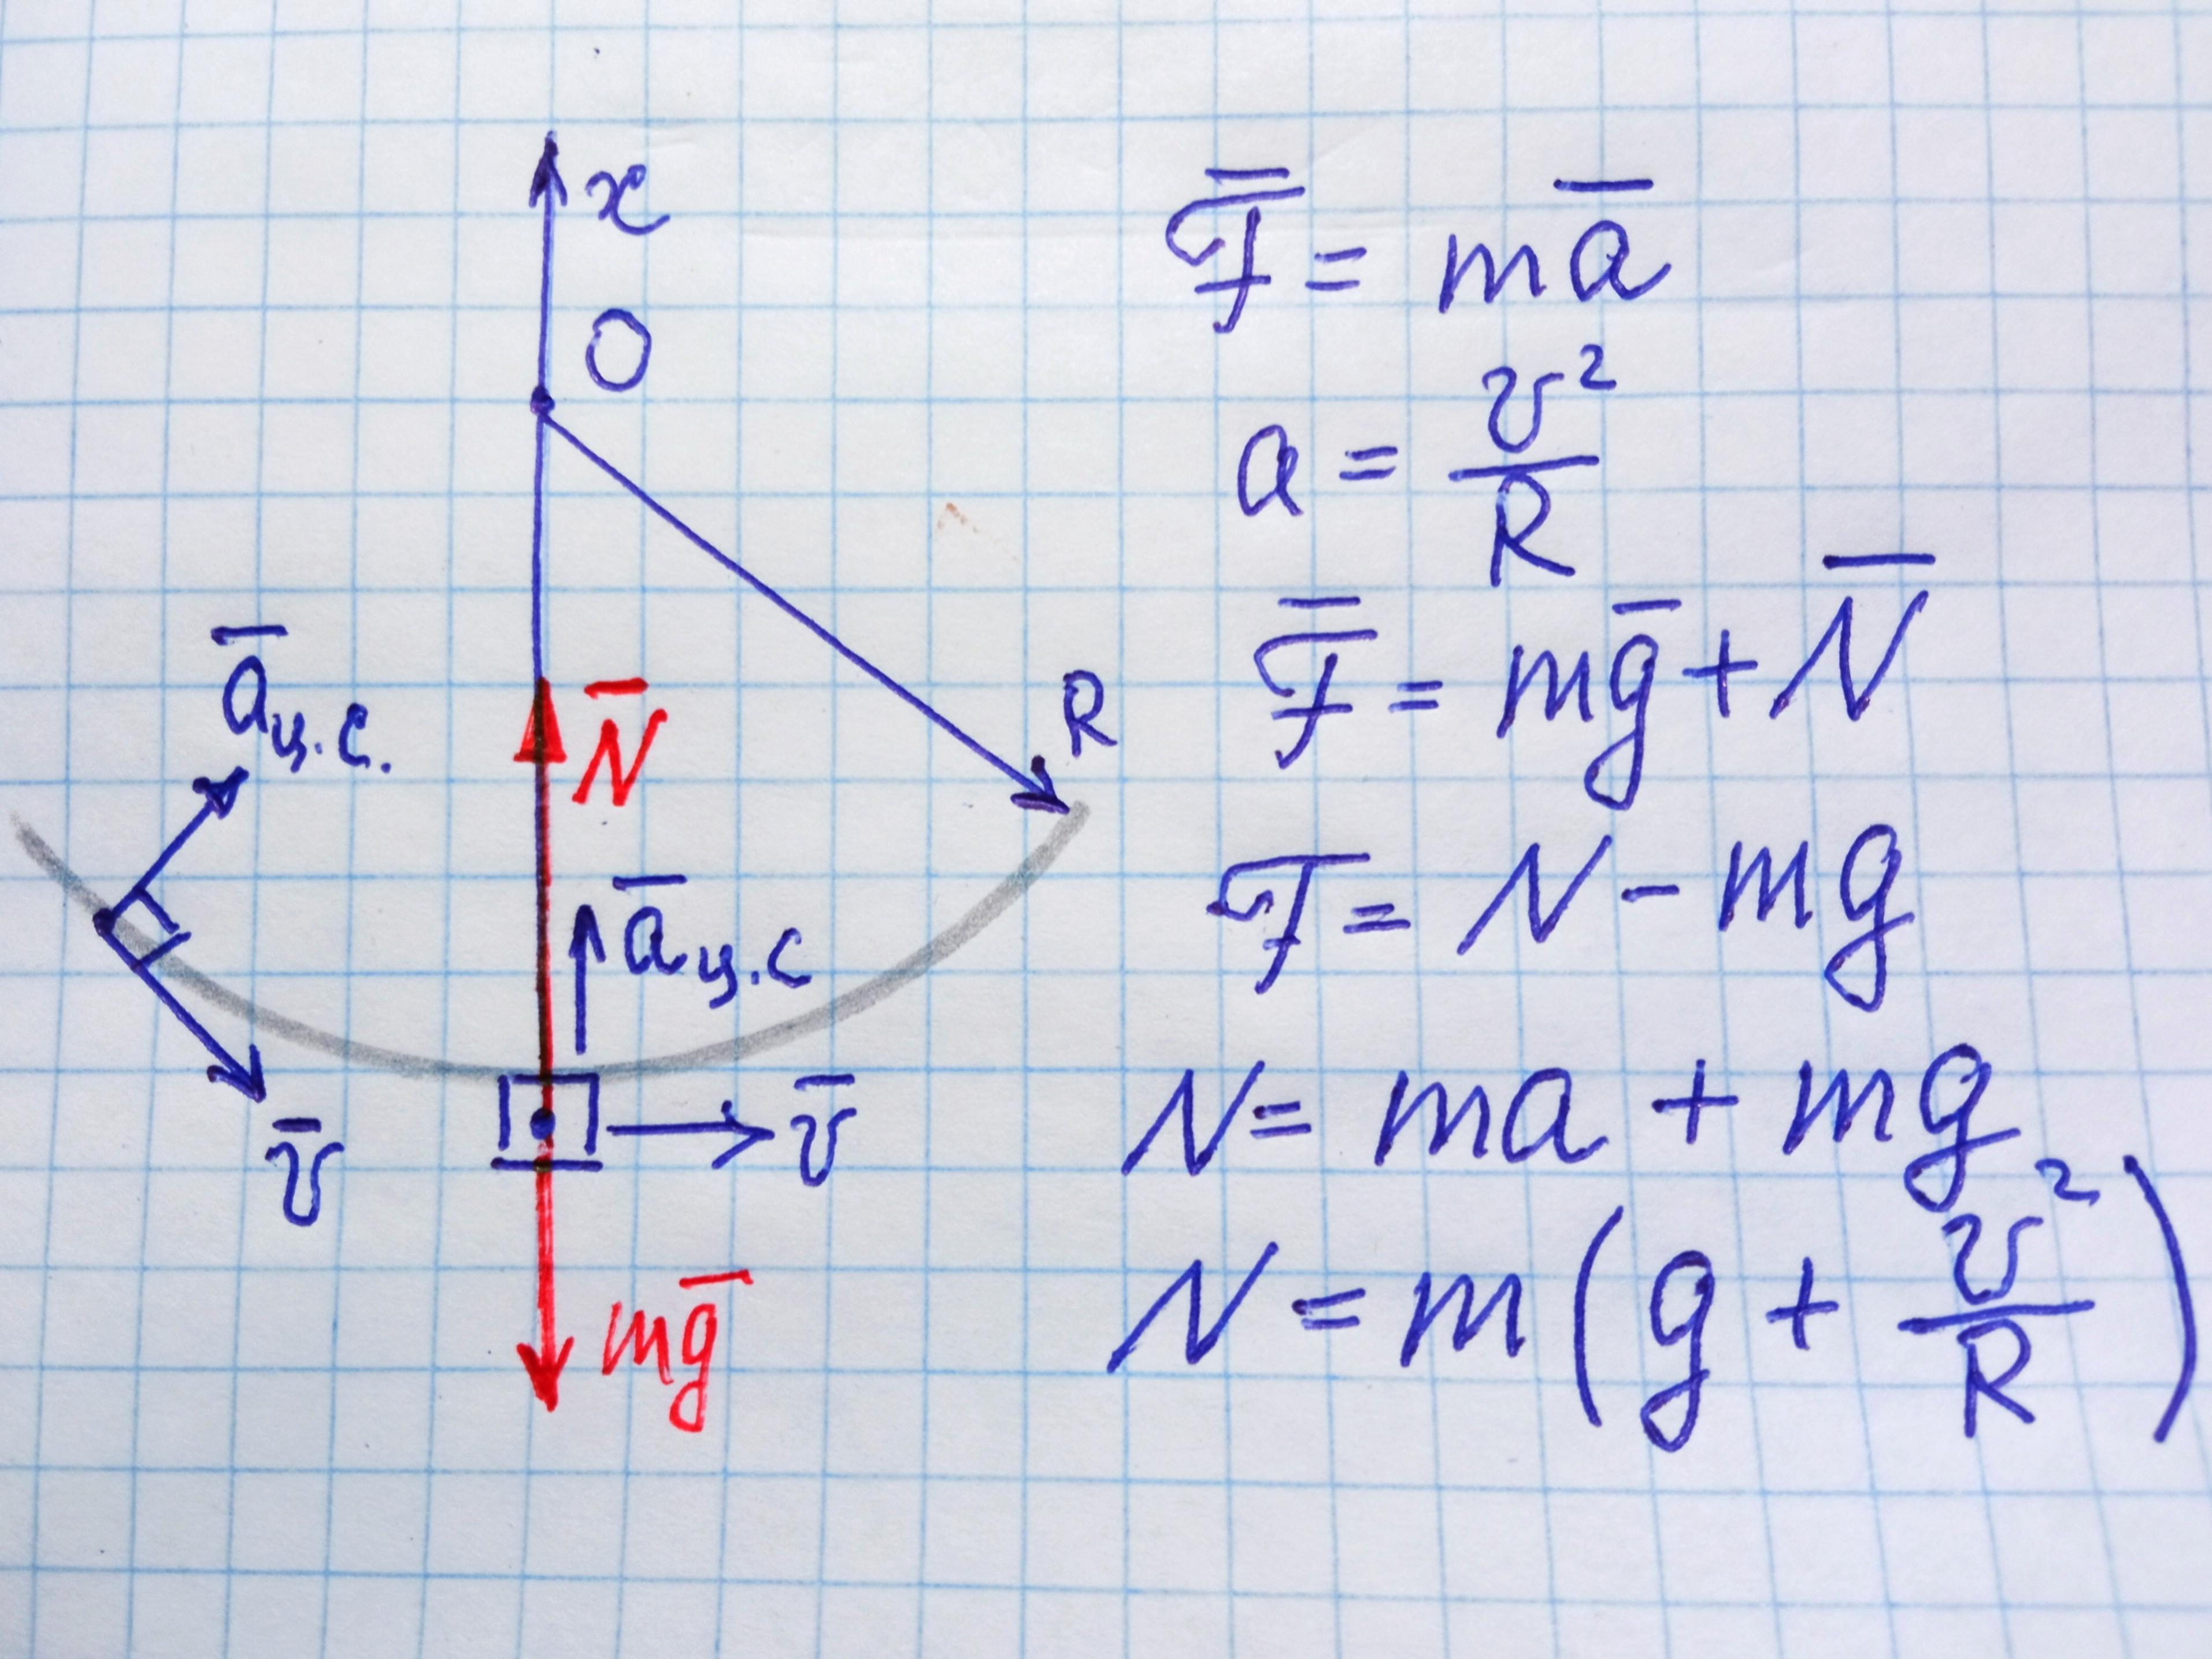 x
O
R
a̅ц.с.
N̅
a̅ц.с
v̅
v̅
mg̅
F̅ = ma̅
a = v²/R
F̅ = mg̅ + N̅
F = N - mg
N = ma + mg
N = m(g + v²/R)